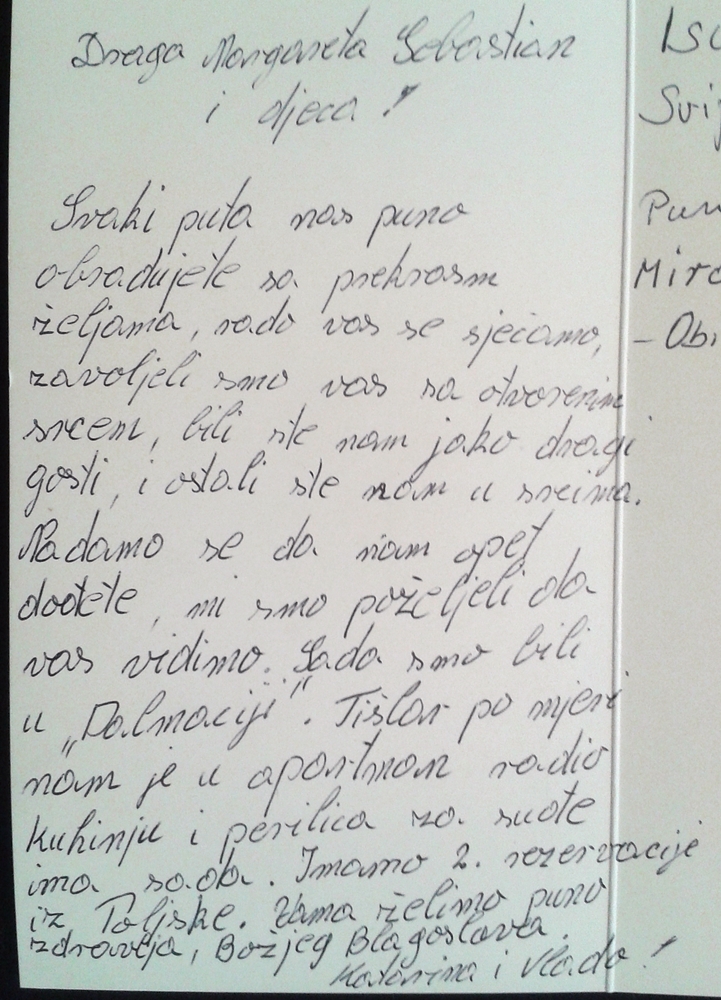 Draga Margareta Sebastian
i djeca!
Svaki puta nas puno
obradujete sa prekrasm
željama, rado vas se sjećamo,
zavoljeli smo vas sa otvorenim
srcem, bili ste nam jako dragi
gosti, i ostali ste nam u srcima.
Nadamo se da nam opet
dođete, mi smo poželjeli da
vas vidimo. Sada smo bili
u „Dalmaciji". Tišlar po mjeri
nam je u apartman radio
kuhinju i perilica za suđe
ima sada. Imamo 2. rezervacije
iz Poljske. Vama želimo puno
zdravlja, Božjeg Blagoslova
Katarina i Vlado!
Svij
Pun
Miro
- Obi